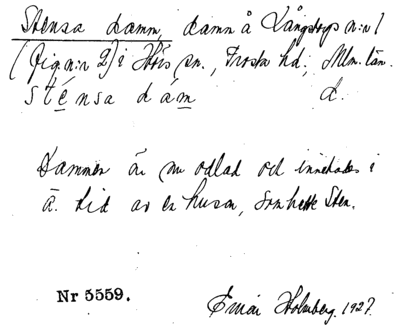 Stensa damm, damm å Långstorps n:r 1
(fig. n:r 2) i Hörs sn., Frosta hd., Mlm. län.
sténsa dam d.
Dammen är nu odlad och innehades i
ä. tid av en husm, som hette Sten.
Nr 5559. Einar Holmberg, 1927.